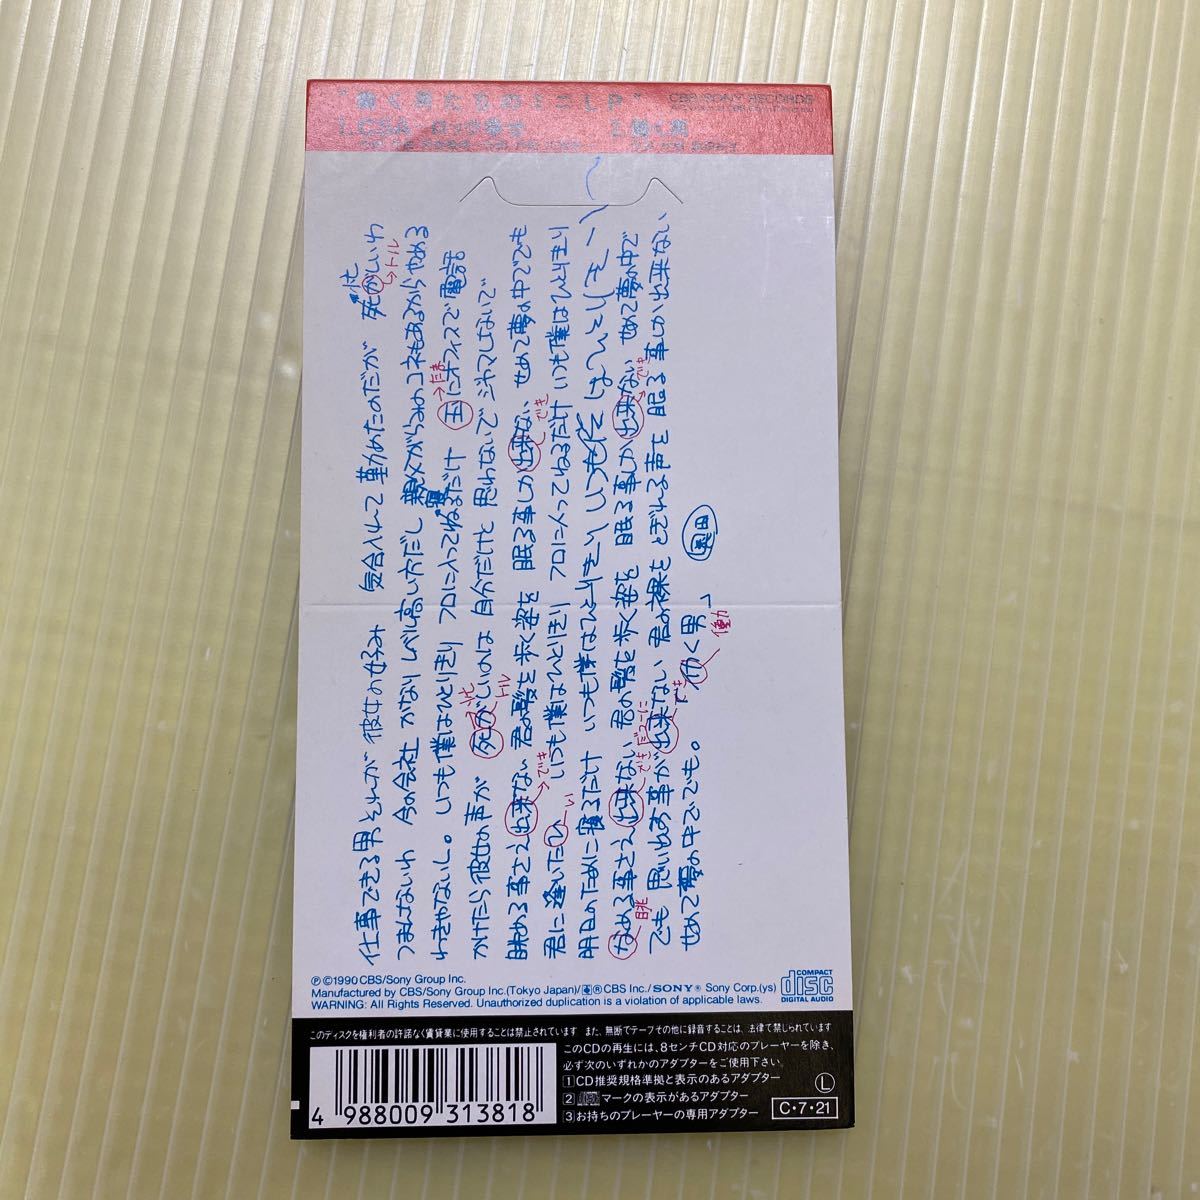 CBS/SONY RECORDS
仕事できる男 それが彼女の好み 気合入れて勤めたのだが 死がしいわ
忙
トル
つまんないわ 今の会社 かなりレベル高い方だし 親父がらみのコネもあるからやめる
わきゃないし。いつも僕はひとりきり フロに入ってねるだけ 玉にオフィスで電話
寝
たま
かけたら彼女の声が 死がしいのは 自分だけと 思わないで ジャマしないで
忙
トル
眺める事さえ出来ない 君の髪を 歩く姿を 眠る事しか出来ない せめて夢の中ででも
でき
でき
君に逢いたひ いつも僕はひとりきり フロに入ってねるだけ いつも僕はひとりきり
い
明日のために寝るだけ いつも僕はひとりきり
なめる事さえ出来ない 君の髪を 歩く姿を 眠る事しか出来ない せめて夢の中で
眺
でき
でき
でも 思い出す事が出来ない 君の裸を とぎれる声を 眠る事しか出来ない
でき
せめて夢の中ででも。 く男
働
奥田
Ⓟ©1990 CBS/Sony Group Inc.
Manufactured by CBS/Sony Group Inc.(Tokyo Japan)/®CBS Inc./SONY® Sony Corp.(ys)
WARNING: All Rights Reserved. Unauthorized duplication is a violation of applicable laws.
COMPACT
disc
DIGITAL AUDIO
このディスクを権利者の許諾なく賃貸業に使用することは禁止されています また、無断でテープその他に録音することは、法律で禁じられています
このCDの再生には、8センチCD対応のプレーヤーを除き、
必ず次のいずれかのアダプターをご使用下さい。
1 CD推奨規格準拠と表示のあるアダプター
2 マークの表示があるアダプター
3 お持ちのプレーヤーの専用アダプター
Ⓛ
C・7・21
4 988009 313818